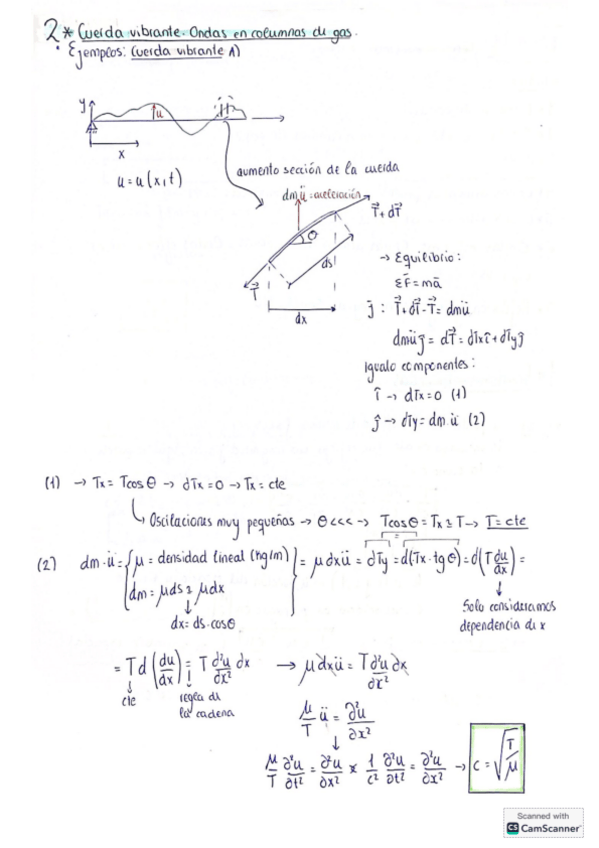 2* Cuerda vibrante. Ondas en columnas de gas.
• Ejemplos: Cuerda vibrante A)
y
u
x
u = u(x,t)
aumento sección de la cuerda
dm ü = aceleración
T⃗ + dT⃗
θ
ds
T⃗
dx
→ Equilibrio:
ΣF̄ = mā
j: T⃗ + dT⃗ - T⃗ = dmü
dmüĵ = dT⃗ = dTx î + dTy ĵ
Igualo componentes:
î → dTx = 0 (1)
ĵ → dTy = dm ü (2)
(1) → Tx = Tcosθ → dTx = 0 → Tx = cte
↳ Oscilaciones muy pequeñas → θ<<< → Tcosθ = Tx ≅ T → T = cte
(2) dm·ü = { μ = densidad lineal (kg/m) } = μdxü = dTy = d(Tx·tgθ) = d(T du/dx) =
dm = μds ≅ μdx
dx = ds·cosθ
Solo consideramos
dependencia de x
= T d(du/dx) = T d²u/dx² dx → μdxü = T ∂²u/∂x² dx
cte
regla de
la cadena
μ/T ü = ∂²u/∂x²
μ/T ∂²u/∂t² = ∂²u/∂x² * 1/c² ∂²u/∂t² = ∂²u/∂x² → c = √(T/μ)
Scanned with
CS CamScanner